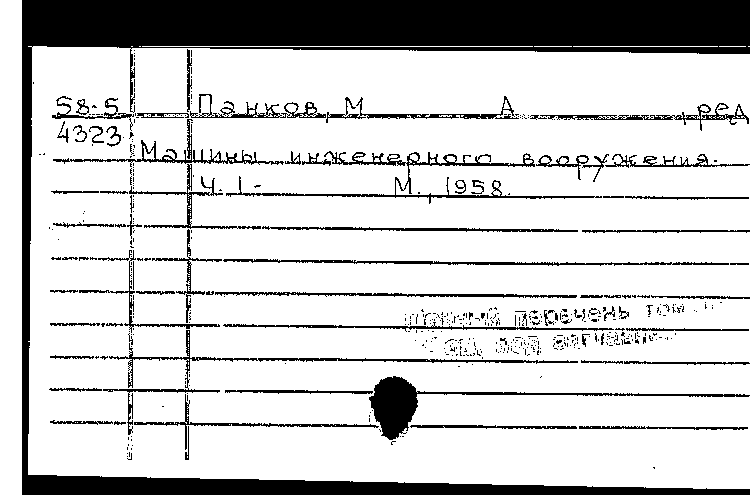 58-5 Панков, М А , ред
4323
Машины инженерного вооружения.
Ч. 1.- М., 1958.
перечень том